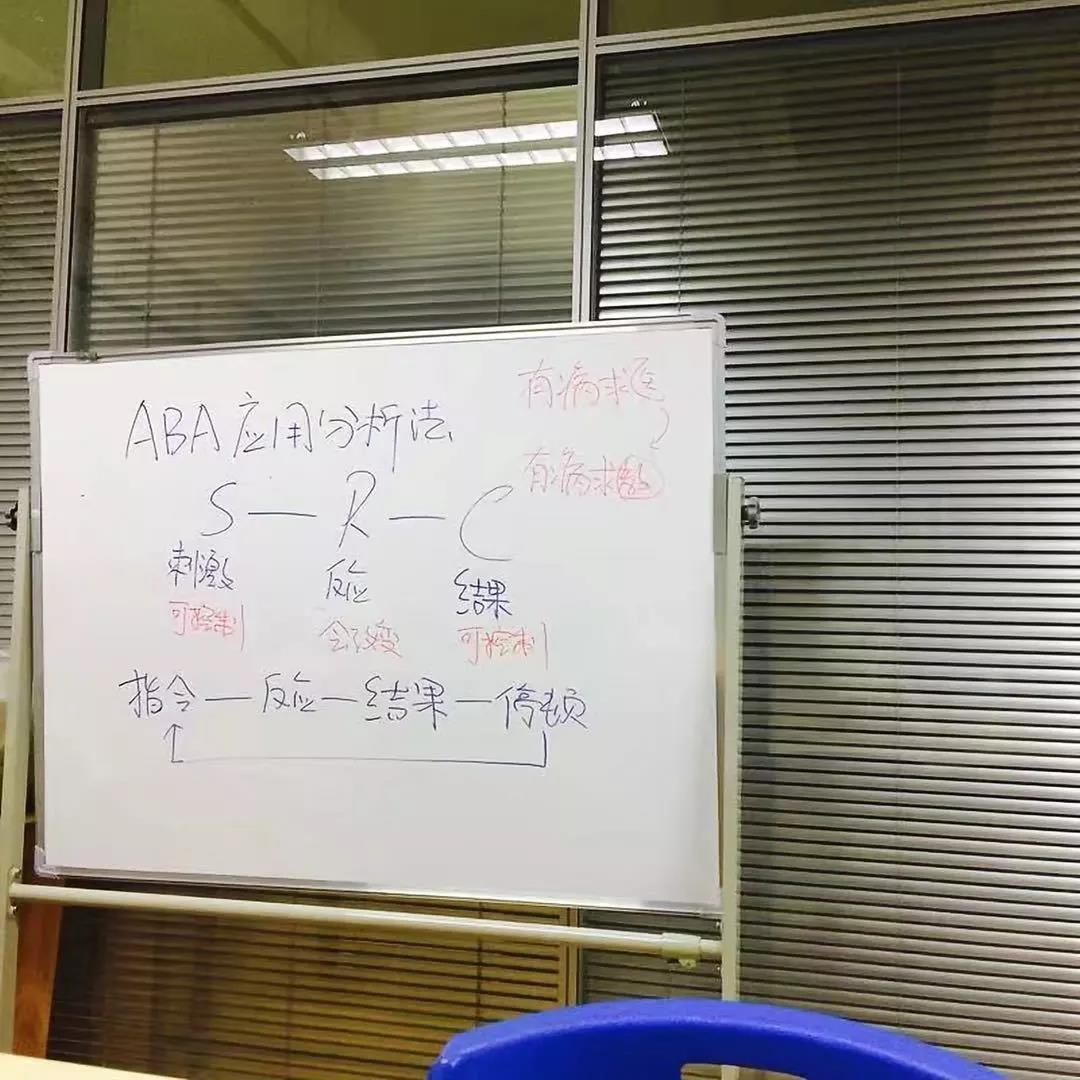 ABA应用分析法
有病求医
有病求教
S — R — C
刺激 反应 结果
可控制 会改变 可控制
指令 — 反应 — 结果 — 停顿